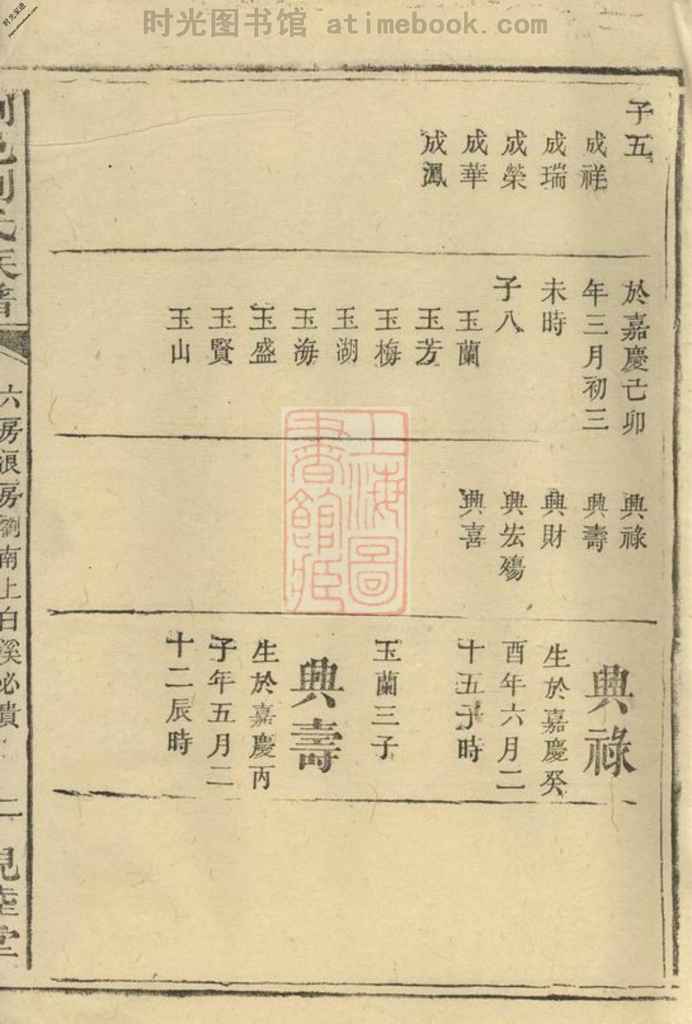 时光图书馆 atimebook.com
子五
成祥
成瑞
成榮
成華
成鳳
於嘉慶己卯
年三月初三
未時
子八
玉蘭
玉芳
玉梅
玉湖
玉海
玉盛
玉賢
玉山
典祿
典壽
典財
典宏殤
典喜
典祿
生於嘉慶癸
酉年六月二
十五子時
玉蘭三子
典壽
生於嘉慶丙
子年五月二
十二辰時
劉氏族譜
六房派房劉南上白溪必貴
上海圖書館藏